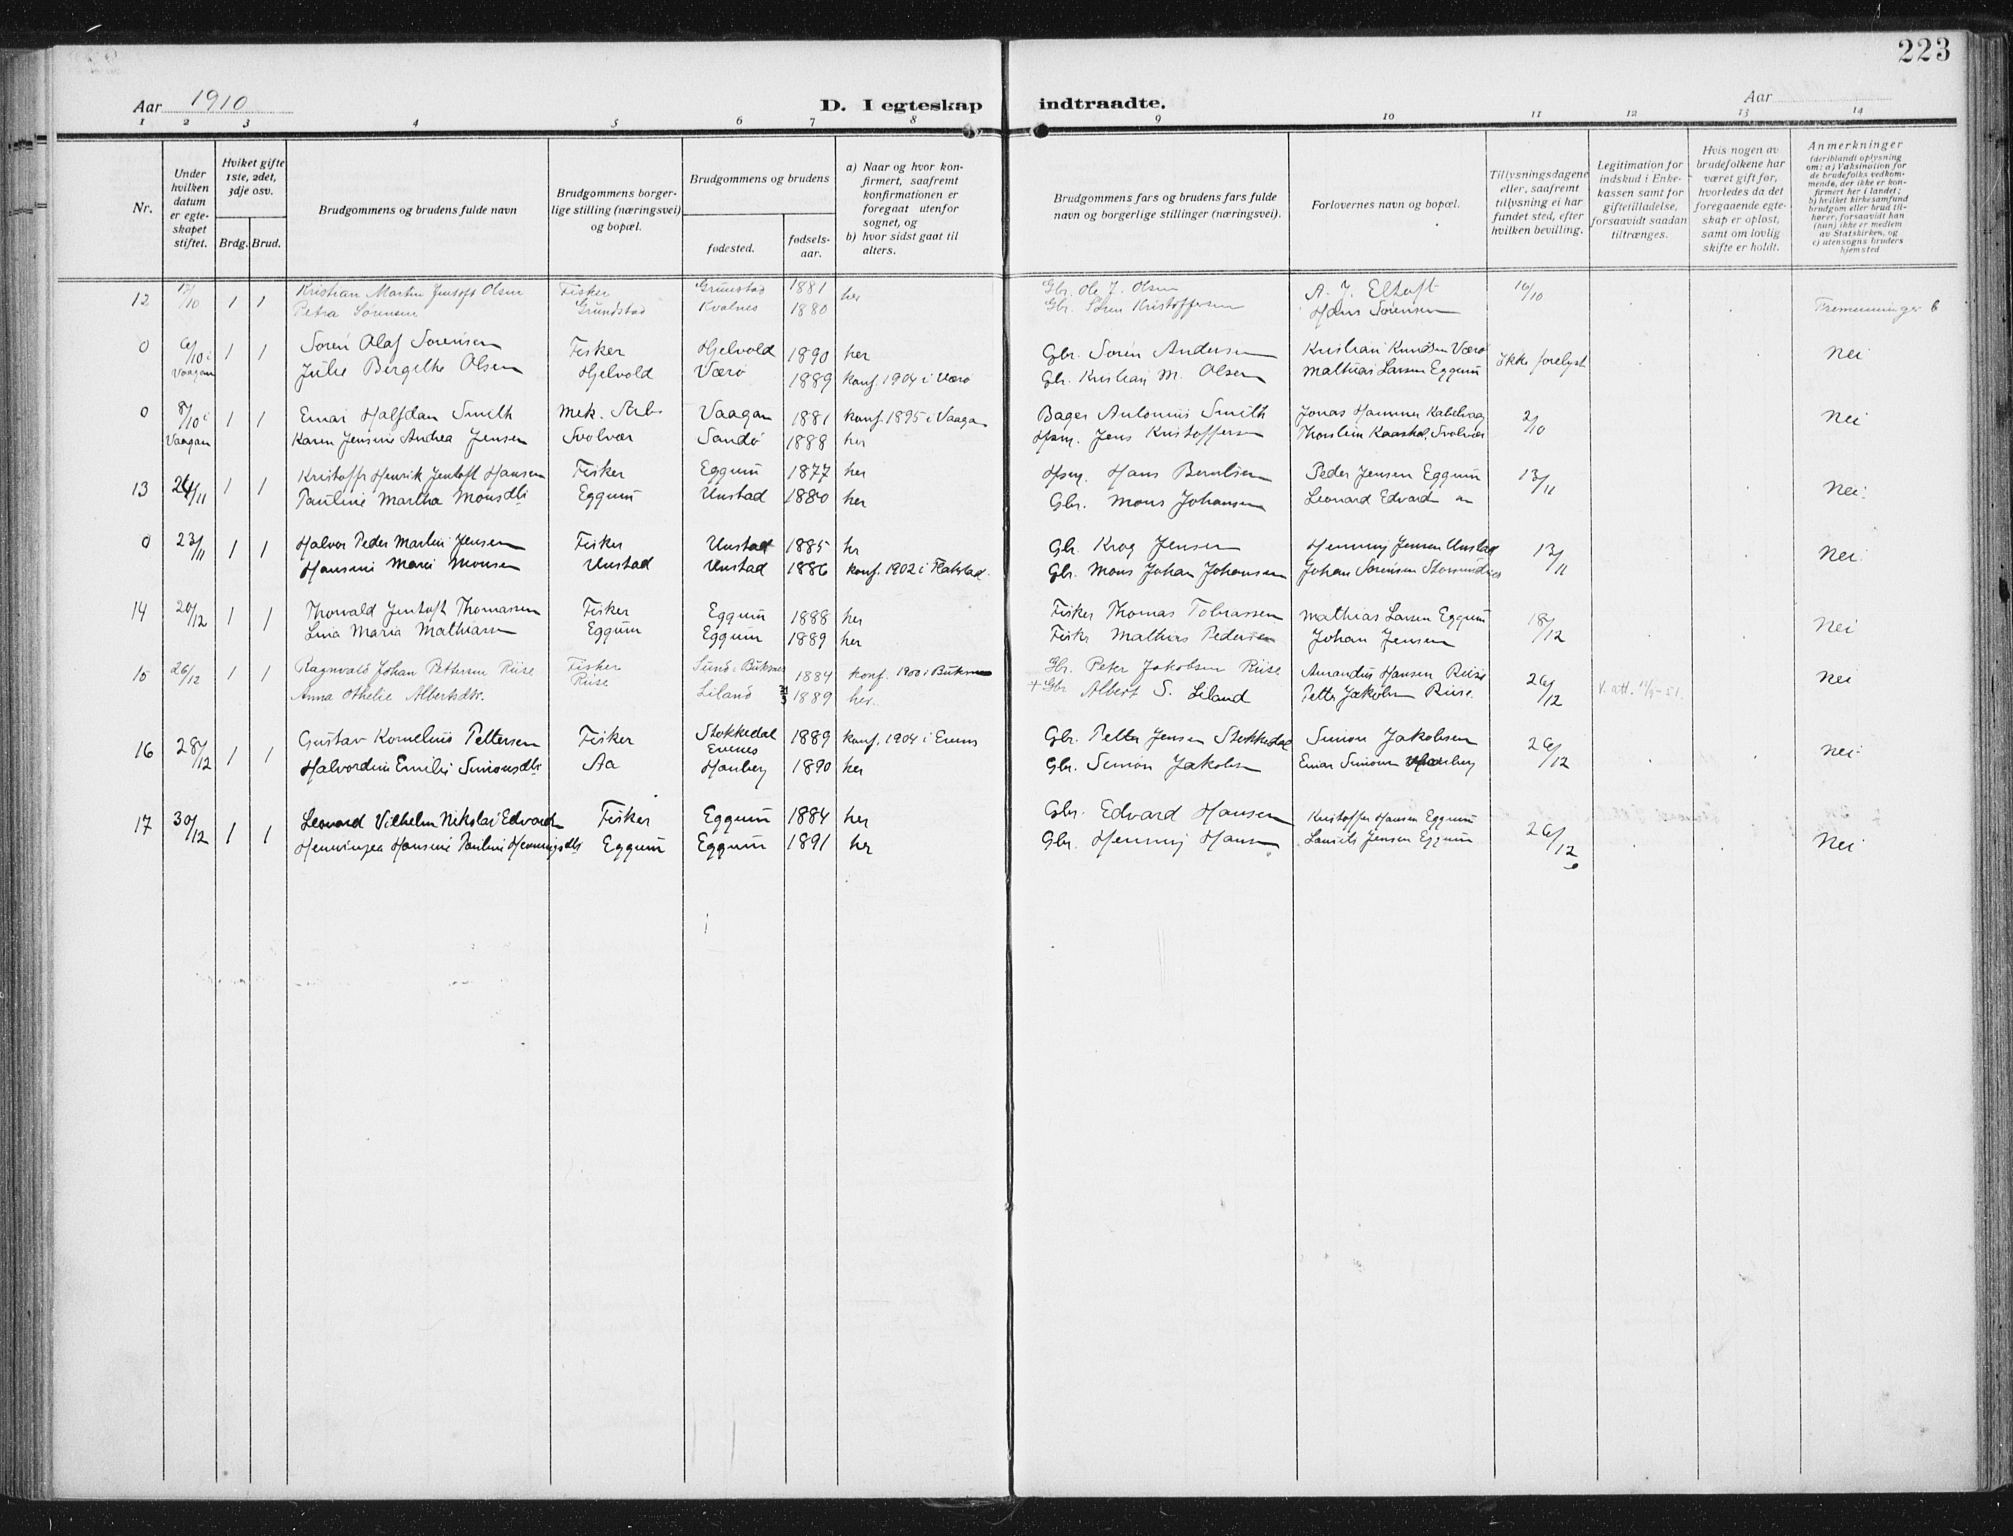 223
Aar 1910
D. I egteskap indtraadte.
Aar
1 2 3 4 5 6 7 8 9 10 11 12 13 14
Nr.
Under hvilken datum er egteskapet stiftet.
Hviket gifte 1ste, 2det, 3dje osv.
Brdg. Brud.
Brudgommens og brudens fulde navn
Brudgommens borgerlige stilling (næringsvei) og bopæl.
Brudgommens og brudens
fødested.
fødselsaar.
a) Naar og hvor konfirmert, saafremt konfirmationen er foregaat utenfor sognet, og
b) hvor sidst gaat til alters.
Brudgommens fars og brudens fars fulde navn og borgerlige stillinger (næringsvei).
Forlovernes navn og bopæl.
Tillysningsdagene eller, saafremt tillysning ei har fundet sted, efter hvilken bevilling.
Legitimation for indskud i Enkekassen samt for giftetilladelse, forsaavidt saadan tiltrænges.
Hvis nogen av brudefolkene har været gift før, hvorledes da det foregaaende egteskap er opløst, samt om lovlig skifte er holdt.
Anmerkninger
(deriblandt oplysning om: a) Vaksination for de brudefolks vedkommende, der ikke er konfirmert her i landet; b) hvilket kirkesamfund brudgom eller brud tilhører, forsaavidt han (hun) ikke er medlem av Statskirken, og c) utensogns bruders hjemsted
12 /10 1 1 Kristian Martin Jentoft Olsen Fisker Grunstad 1881 her Gbr. Ole J. Olsen A. J. Eltoft 16/10 Fremenninger
Petra Sørensen Grundstad Kvalnes 1880 Gbr. Søren Kristoffersen Hans Sørensen
0 6/10 i 1 1 Søren Olaf Sørensen Fisker Hjelvold 1890 her Gbr. Søren Andersen Kristian Knudsen Værø Ikke forelyst Nei
Vaagan Julie Birgithe Olsen Hjelvold Værø 1889 konf. 1904 i Værø Gbr. Kristian M. Olsen Mathias Larsen Eggum
0 8/10 i 1 1 Einar Halfdan Smith Mek. Arb. Vaagan 1881 konf. 1895 i Vaagan Bager Antonius Smith Jonas Hammer Kabelvaag 2/10 Nei
Vaagan Karen Jensine Andrea Jensen Svolvær Sandø 1888 her Hsm. Jens Kristoffersen Thorstein Svolvær
13 24/11 1 1 Kristoffer Henrik Jentoft Hansen Fisker Eggum 1877 her Hsm. Hans Berntsen Peder Jensen Eggum 13/11 Nei
Pauline Martha Monsdtr Eggum Unstad 1880 her Gbr. Mons Johansen Leonard Edvard
0 23/11 1 1 Halvor Peder Martin Jensen Fisker Unstad 1885 her Gbr. Krog Jensen Henning Jensen Unstad 13/11 Nei
Hansine Marie Monsen Unstad Unstad 1886 konf. 1902 i Flakstad. Gbr. Mons Johan Johansen Johan Sørensen
14 20/12 1 1 Thorvald Jentoft Thomassen Fisker Eggum 1888 her Fisker Thomas Tobiassen Mathias Larsen Eggum 18/12 Nei
Lina Maria Mathiasen Eggum Eggum 1889 her Fisker Mathias Pedersen Johan Jensen
15 26/12 1 1 Ragnvald Johan Pettersen Riise Fisker Sund i Buksnes 1884 konf. 1900 i Buksnes Gbr. Peter Jakobsen Riise Amandus Hansen Riise 26/12 Nei
Anna Othelie Albertsdtr. Riise Liland 1889 her. + Gbr Albert S. Leland Petter Jakobsen Riise V. att.
16 28/12 1 1 Gustav Kornelius Pettersen Fisker Stokkedal Evenes 1889 konf. 1904 i Evenes Gbr. Petter Jensen Stokkedal Simon Jakobsen 26/12 Nei
Halvordine Emilie Simonsdtr Aa Hauberg 1890 her Gbr. Simon Jakobsen Einar Simonsen Hauberg
17 30/12 1 1 Leonard Vilhelm Nikolai Edvardsen Fisker Eggum 1884 her Gbr. Edvard Hansen Kristoffer Hansen Eggum 26/12 Nei
Henningea Hansine Pauline Henningsdtr Eggum Eggum 1891 her Gbr. Henning Hansen Laurits Jensen Eggum